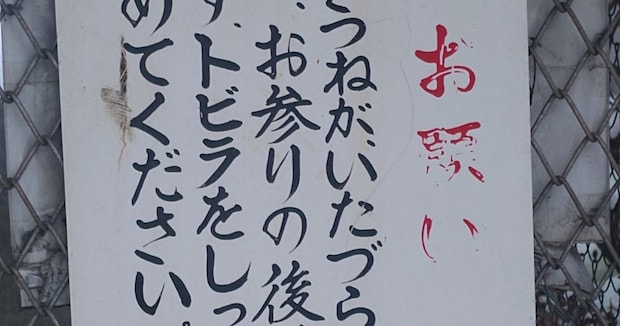 お願い
うねがいたづら
、お参りの後
す、トビラをしっ
めてください。